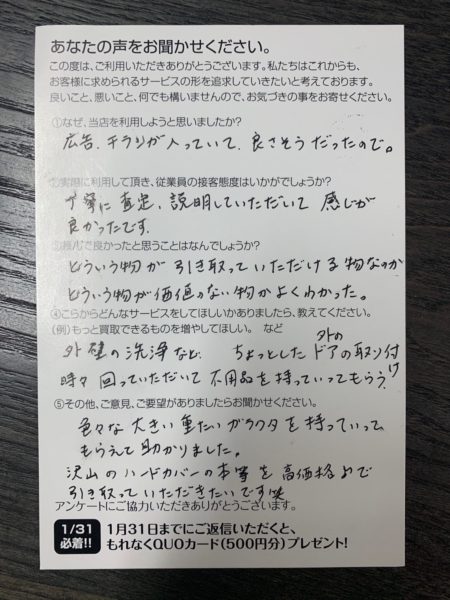 あなたの声をお聞かせください。
この度は、ご利用いただきありがとうございます。私たちはこれからも、
お客様に求められるサービスの形を追求していきたいと考えております。
良いこと、悪いこと、何でも構いませんので、お気づきの事をお寄せください。
①なぜ、当店を利用しようと思いましたか?
広告、チラシが入っていて、良さそうだったので。
②実際に利用して頂き、従業員の接客態度はいかがでしょうか?
丁寧に査定、説明していただいて 感じが
良かったです。
③頼んで良かったと思うことはなんでしょうか?
どういう物が引き取っていただける物なのか
どういう物が価値のない物かよくわかった。
④こらからどんなサービスをしてほしいかありましたら、教えてください。
(例)もっと買取できるものを増やしてほしい。 など
外壁の洗浄など、 ちょっとした外のドアの取り付け
時々回っていただいて 不用品を持っていってもらう。
⑤その他、ご意見、ご要望がありましたらお聞かせください。
色々な大きい重たいガラクタを持っていって
もらえて助かりました。
沢山のハードカバーの本等を高価格で
引き取っていただきたいです笑
アンケートにご協力いただきありがとうございます。
1/31
必着!!
1月31日までにご返信いただくと、
もれなくQUOカード(500円分)プレゼント!